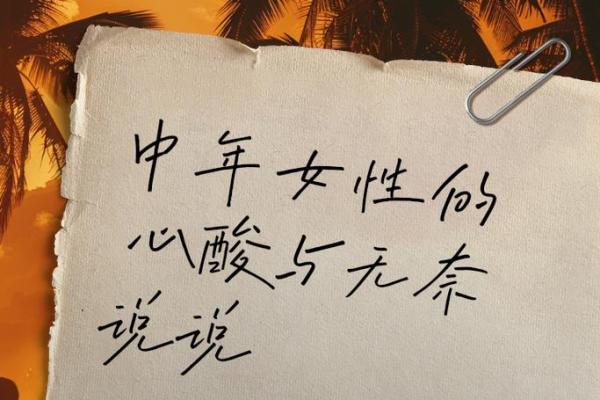 中年女性的
心酸与无奈
说说